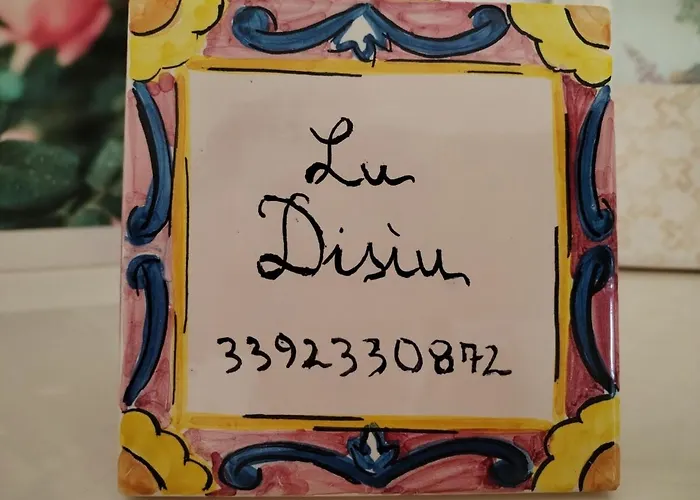 Lu
Disìu
3392330872